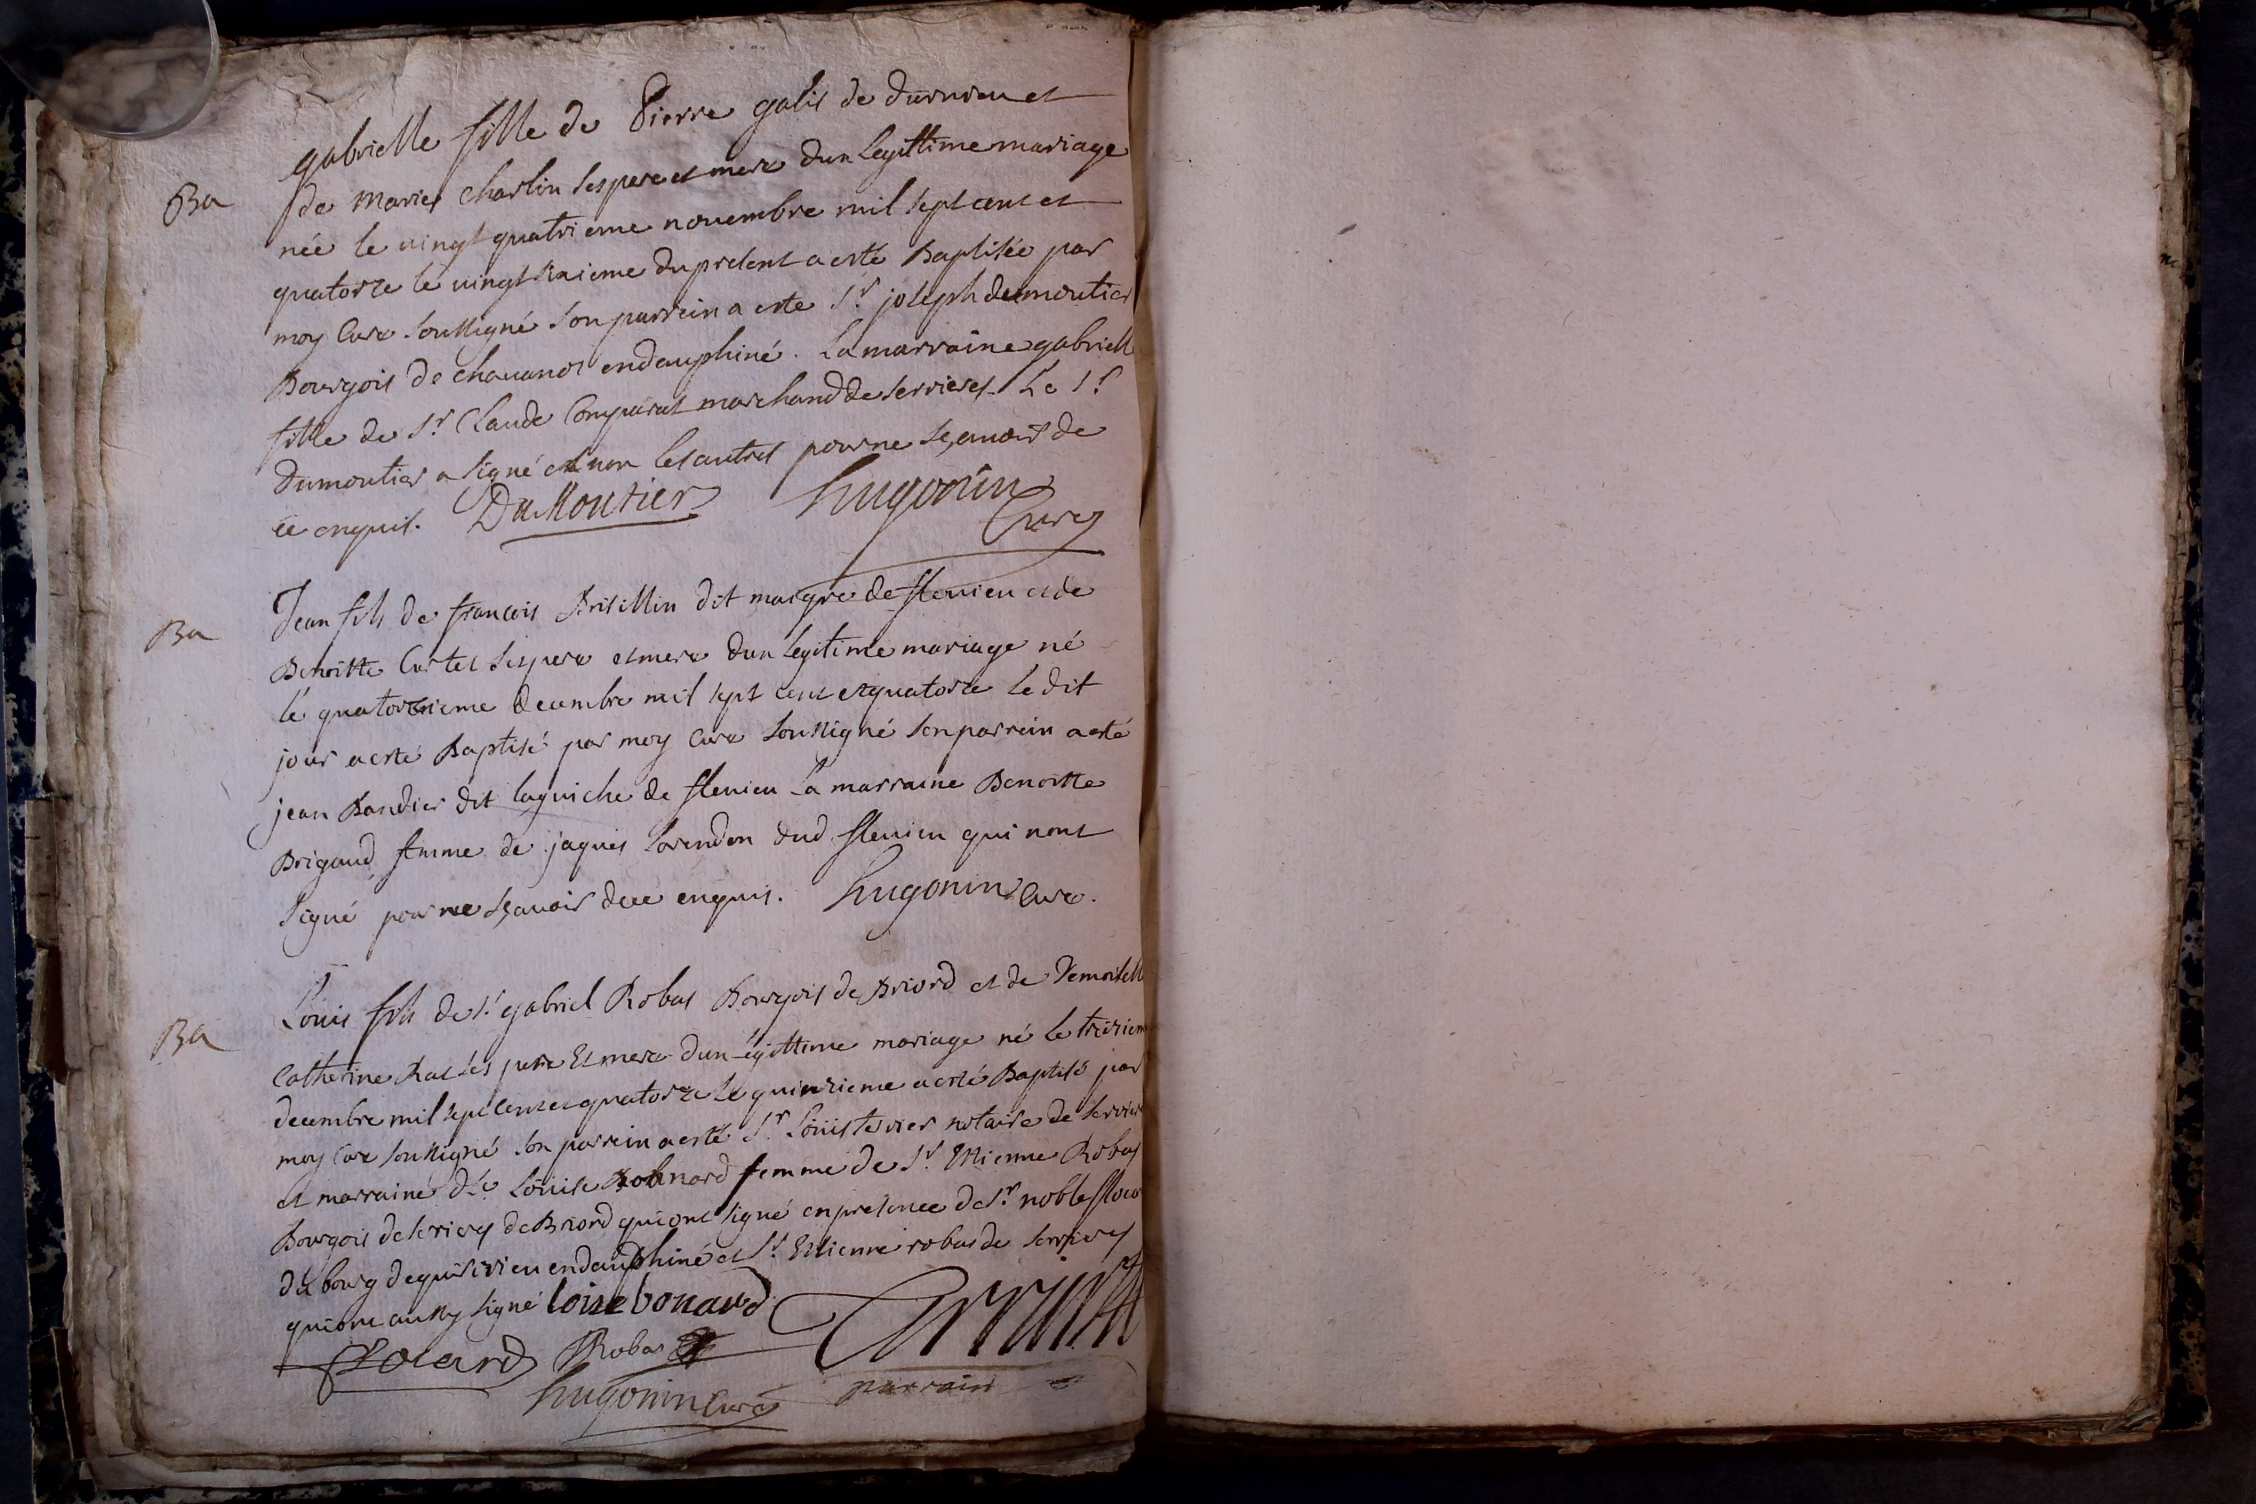 gabrielle fille de Pierre galis de et
Ba
de Marie Charlin ses pere et mere dun legittime mariage
née le vingt quatrieme novembre mil sept cent et
quatorze le vingt sixieme du present a esté Baptisée par
moy Curé soussigné son parrein a esté Sr joseph dumoutier
Bourgois de chavanos en dauphiné. La marraine gabriell
fille de Sr Claude Comparat marchand de serrieres. Le Sr
Dumoutier a signé et non les autres pour ne sçavoir de
ce enquis. DuMoutier hugonin
Curé
Jean fils de francois Brisillin dit maigre de flevieu et de
Ba
Benoitte Curtet ses pere et mere dun legitime mariage né
le quatorzieme decembre mil sept cent et quatorze le dit
jour a esté Baptisé par moy Curé soussigné son parrain a esté
jean Bandier dit laguiche de flevieu La marraine Benoitte
Brigaud femme de jaques dud flevieu qui nont
signé pour ne sçavoir de ce enquis. hugonin Curé.
Louis fils de sr gabriel Robas Bourgois de Briord et de Demoisell
Ba
Catherine Rat ses pere Et mere dun legittime mariage né le treiziem
decembre mil sept cent et quatorze Le quinzieme a esté Baptisé par
moy Curé soussigné son parrein a esté Sr Louis notaire de serrier
et marraine dle Louise Bonnard femme de Sr Etienne Robas
Bourgois de serrieres de Briord qui ont signé en presence de Sr noble
du bourg de quirieu en dauphiné et Sr Estienne robas de serrieres
qui ont aussy signé loise bonard
Robas
hugonin Curé parrain